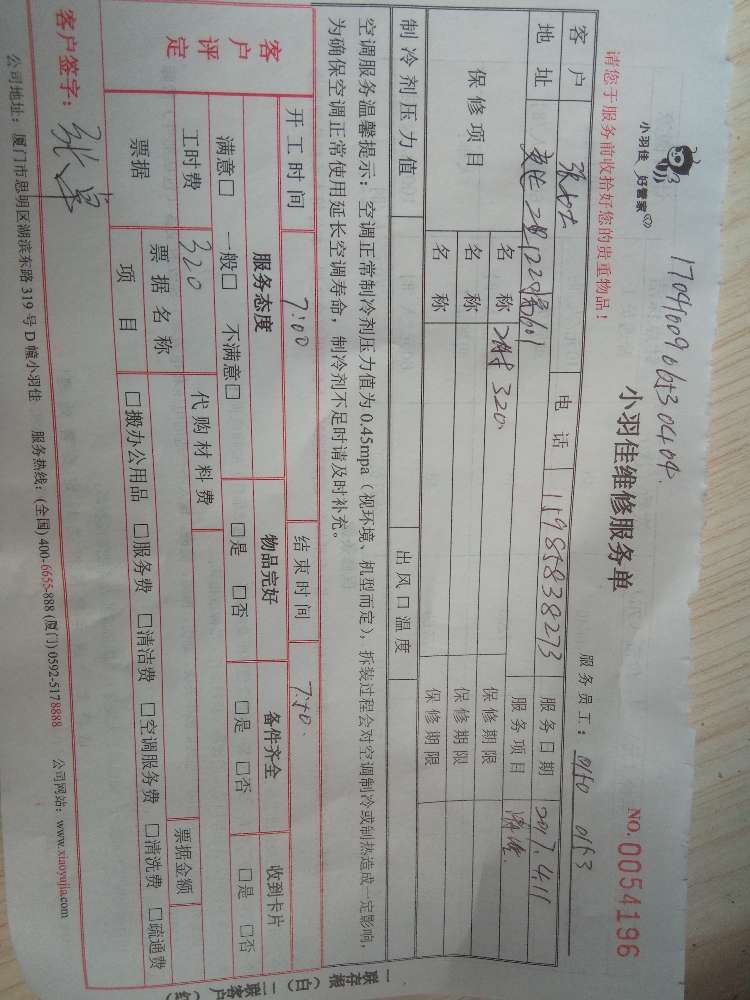 小羽佳 好管家
1704100906530404
小羽佳维修服务单
NO.0054196
请您于服务前收拾好您的贵重物品！
服务员工：0150 0153
客户 张女士 电话 15985838273 服务日期 2017.4.11
地址 601 服务项目
保修项目 名称 320 保修期限
名称 保修期限
名称 保修期限
制冷剂压力值 出风口温度
空调服务温馨提示：空调正常制冷剂压力值为0.45mpa（视环境、机型而定），拆装过程会对空调制冷或制热造成一定影响，
为确保空调正常使用延长空调寿命，制冷剂不足时请及时补充。
开工时间 7:00 结束时间 7:40
客户评定 服务态度 物品完好 备件齐全 收到卡片
满意□ 一般□ 不满意□ □是 □否 □是 □否 □是 □否
工时费 320 代购材料费
票据 票据名称 票据金额
项目 □搬办公用品 □服务费 □清洁费 □空调服务费 □清洗费 □疏通费
客户签字：张
公司地址：厦门市思明区湖滨东路319号D幢小羽佳 服务热线：(全国)400-6655-888 (厦门)0592-5178888 公司网站：www.xiaoyujia.com
一联存根（白）二联客户